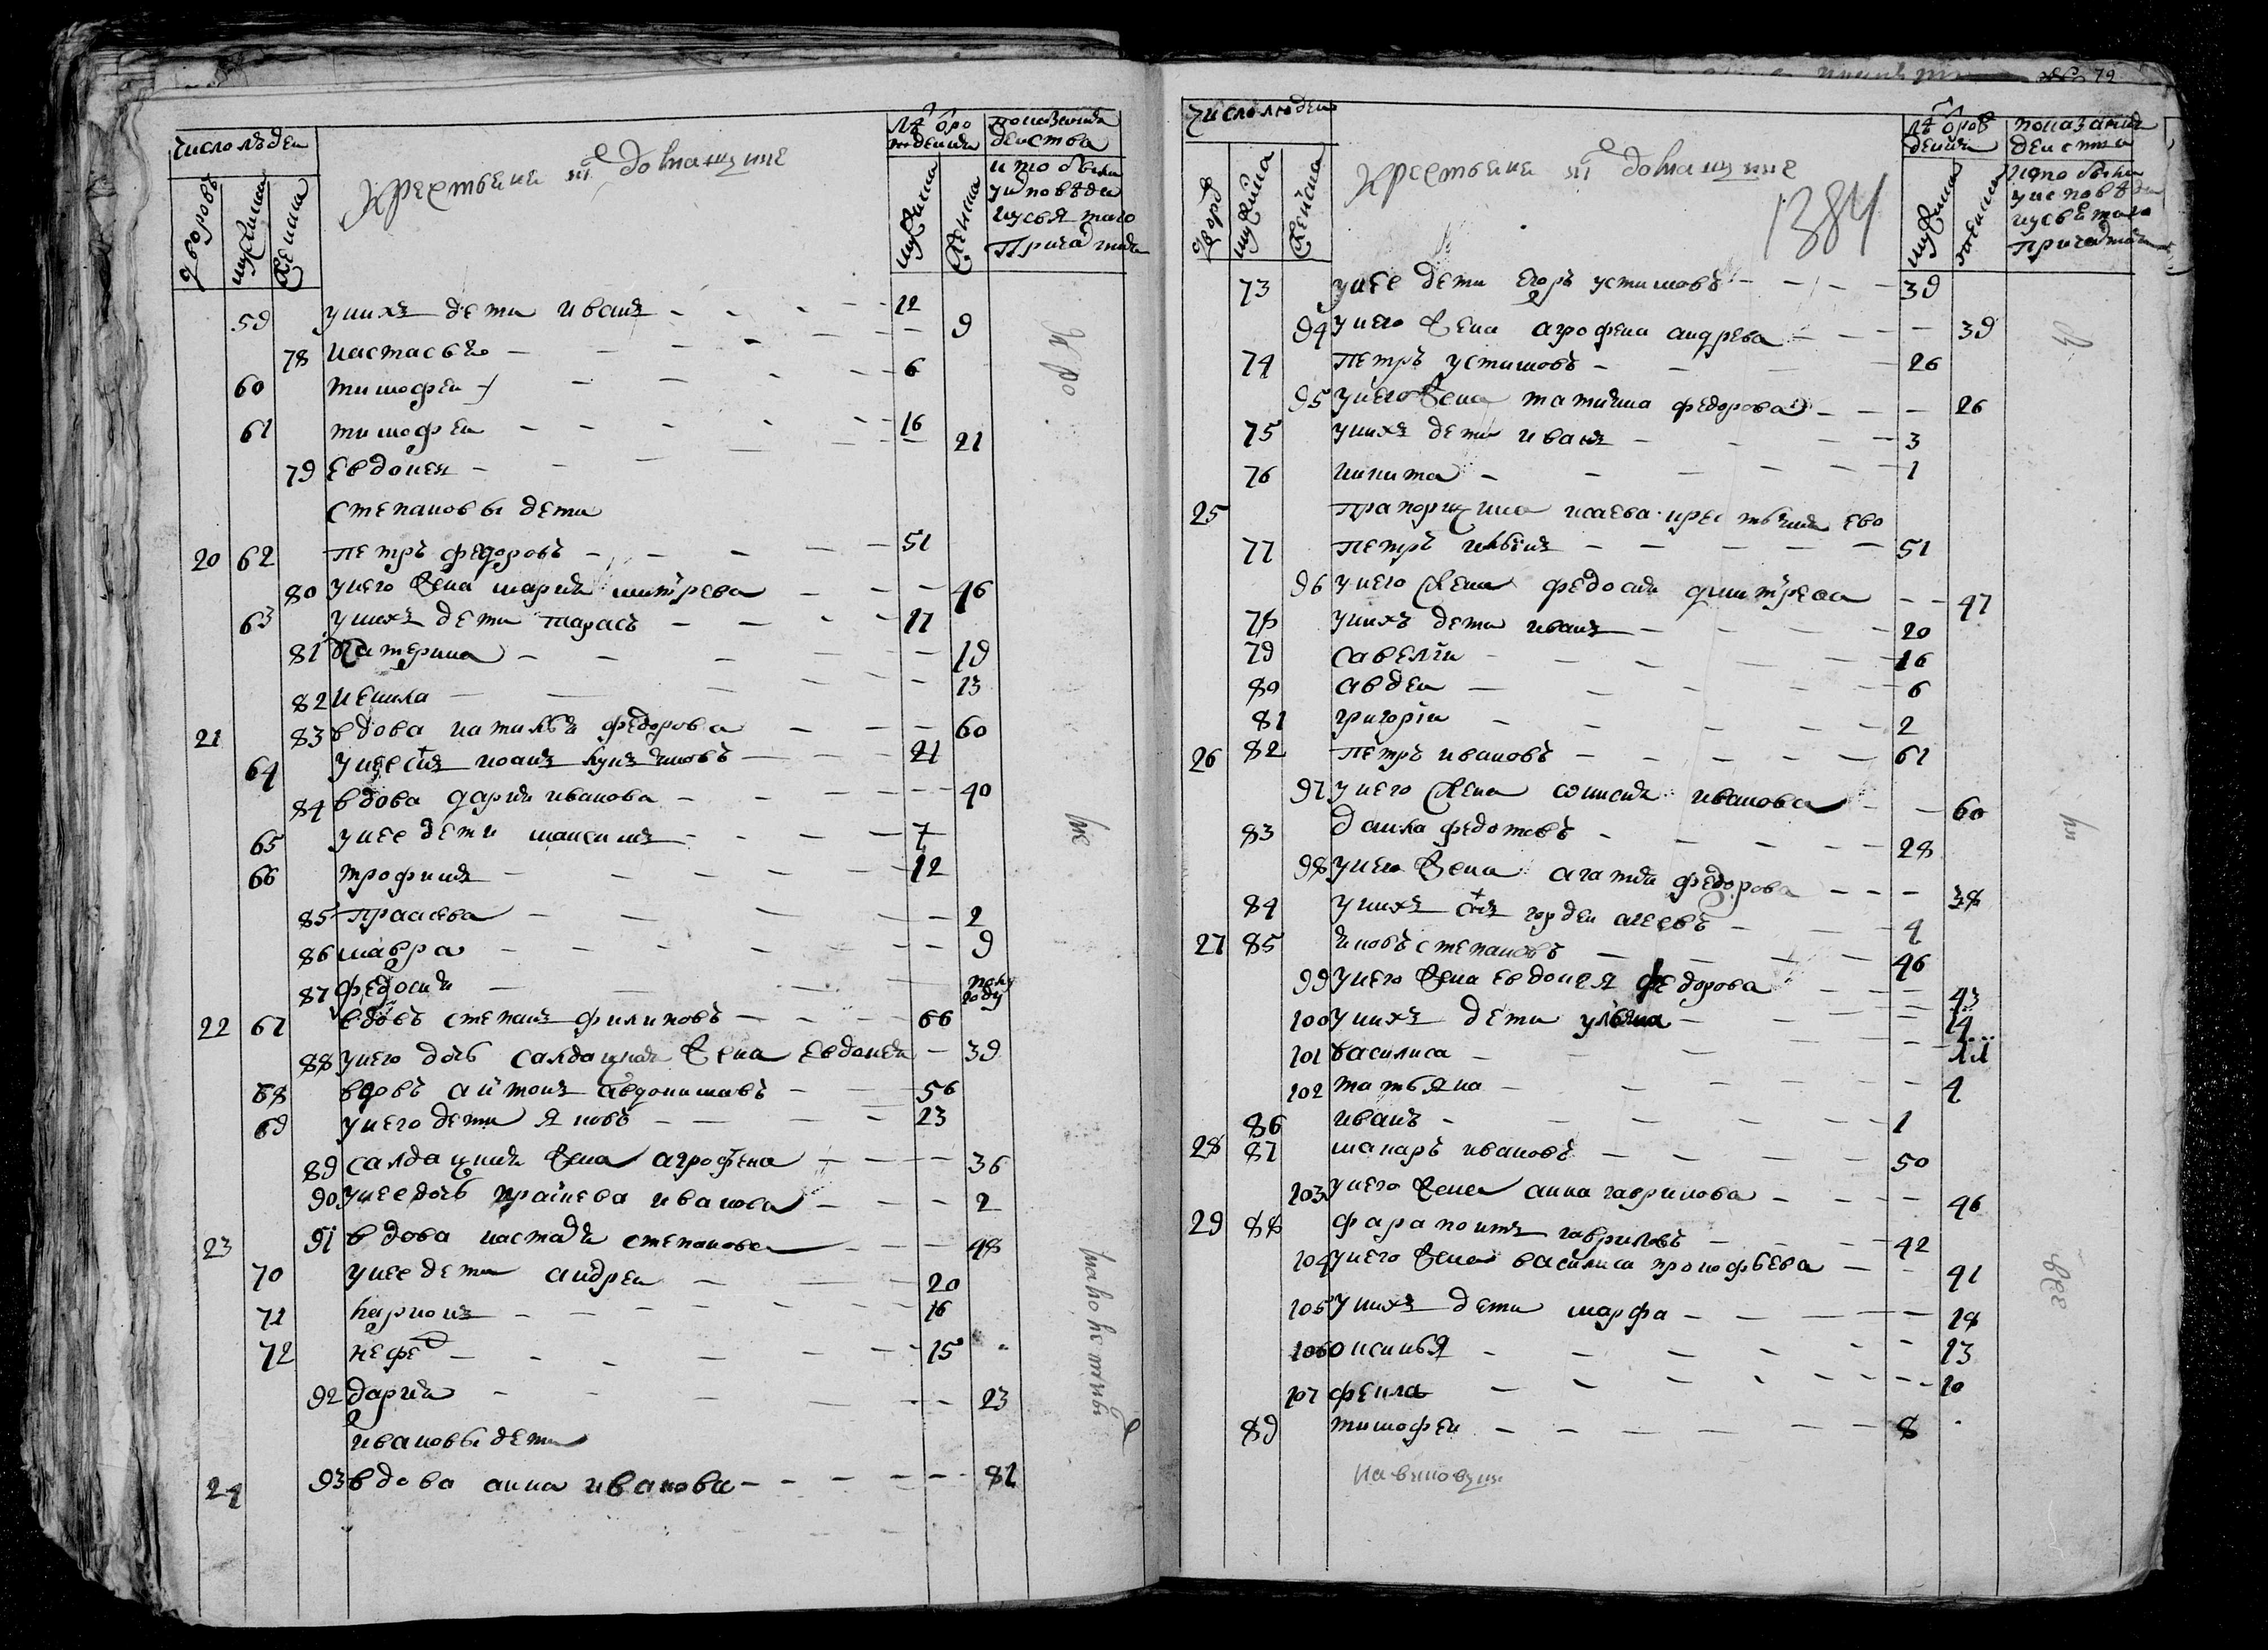 число людеи
дворовъ
мужиска
женска
крестьяне и домашние
лѣта от рождения
мужиска
женска
показания
деиства
кто были
у исповѣди
и у святаго
причастия
59 у нихъ дети иванъ 12
78 настасья 9
60 тимофеи 6
61 тимофеи 16
79 евдокея 21
степановы дети
20 62 петръ федоровъ 51
80 у него жена мария митрева 46
63 у нихъ дети тарасъ 17
81 катерина 19
82 некила 13
21 83 вдова наталья федорова 60
64 у нее сынъ иоанъ кузъминовъ 21
84 вдова дария иванова 40
65 у нее дети максимъ 7
66 трофимъ 12
85 праскева 2
86 мавра 9
87 федосия полу году
22 67 вдовъ степанъ филиповъ 66
88 у него дочь салдацкая жена евдокея 39
68 вдовъ антонъ авдокимавъ 56
69 у него дети яковъ 23
89 салдацкая жена агрофена 36
90 у нее дочь праскева иванова 2
23 91 вдова настасия степанова 48
70 у нее дети андреи 20
71 карпонъ 16
72 нефед 15
92 дария 23
ивановы дети
24 93 вдова анна иванова 81
79
число людеи
дворовъ
мужиска
женска
крестьяне и домашние
1384
лѣта от рождения
мужиска
женска
показания
деиства
кто были
у исповѣди
и у святаго
причастия
73 у нее дети егоръ устимовъ 39
94 у него жена агрофена андрева 39
74 петръ устимовъ 26
95 у него жена татияна федорова 26
75 у нихъ дети иванъ 3
76 никита 1
25 прапорщика исаева крестьяня ево
77 петръ 51
96 у него жена федосия дмитрева 47
78 у нихъ дети иванъ 20
79 савелiи 16
80 авдеи 6
81 григорiи 2
26 82 петръ ивановъ 61
97 у него жена иванова 60
83 данила федотовъ 28
98 у него жена агатия федорова 38
84 у нихъ сынъ гордеи агеевъ 4
27 85 яковъ степановъ 46
99 у него жена евдокея федорова 43
100 у нихъ дети ульяна 14
101 василиса 11
102 татьяна 4
86 иванъ 1
28 87 макаръ ивановъ 50
103 у него жена анна гаврилова 46
29 88 фарапонтъ гавриловъ 42
104 у него жена василиса прокофьева 41
105 у нихъ дети марфа 18
106 оксинья 13
107 фекла 10
89 тимофеи 8